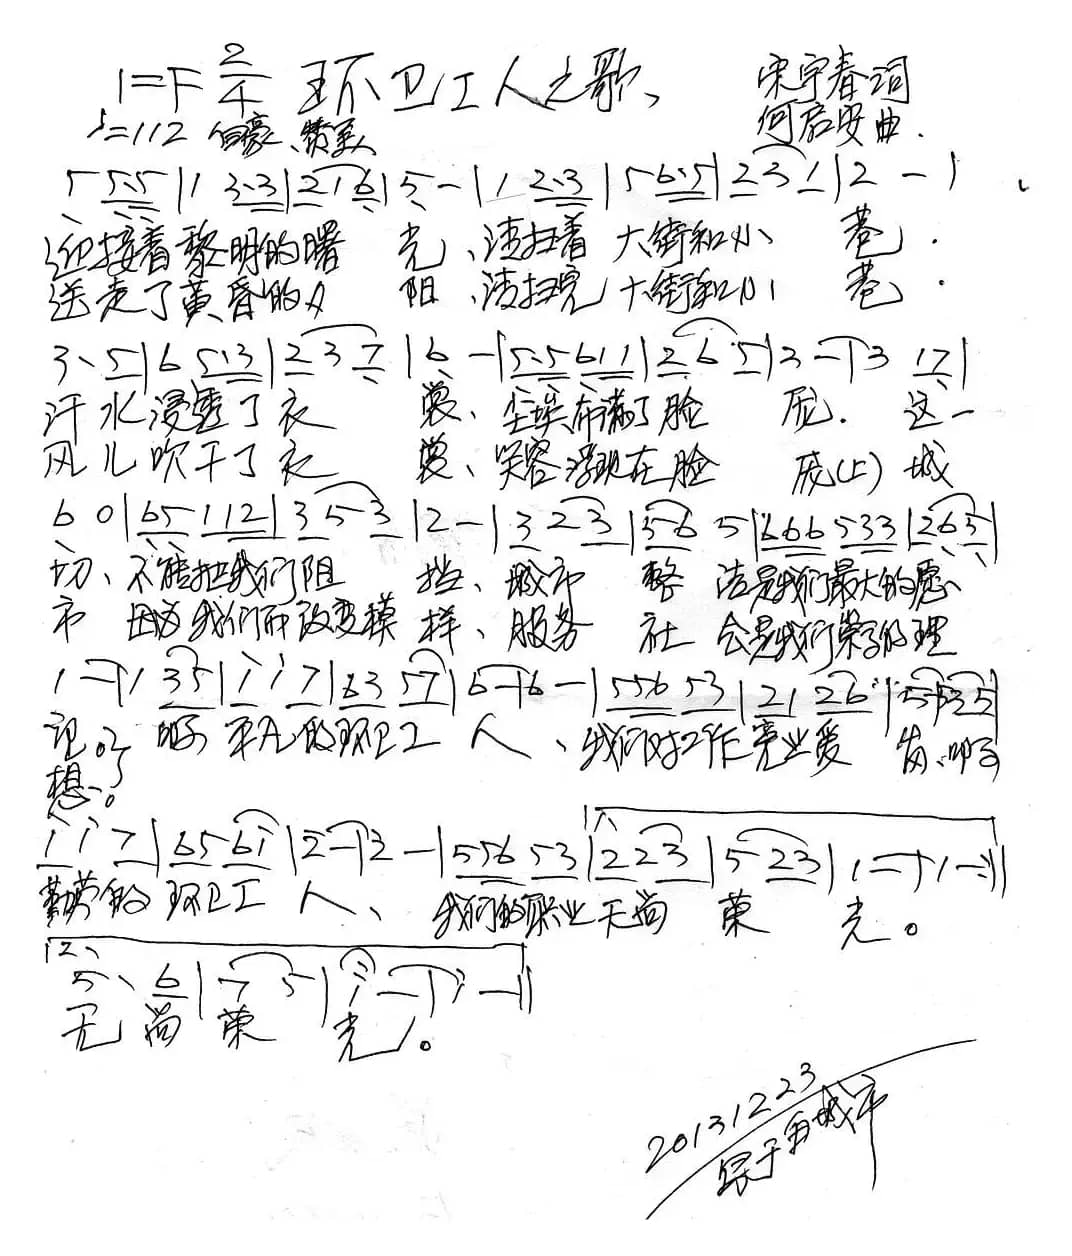 1=F 2/4 环卫工人之歌、 宋宇春词
♩=112 自豪、赞美 何启安曲.
5 5·5|1 3·3|2 1 6|5 -|1 2·3|5 6·5|2 3 1|2 -|
迎接着黎明的曙 光、清扫着 大街和小 巷.
送走了黄昏的夕 阳、清扫完 大街和小 巷.
3、5|6 5·3|2 3 7|6 -|5·5 6 1 1|2 6 5|3 -|3 1 7|
汗水浸透了衣 裳、尘埃布满了脸 庞. 这一
风儿吹干了衣 裳、笑容浮现在脸 庞(上) 城
6 0|6 5 1 1 2|3 5 3|2 -|3 2 3|5 6 5|6 6 6 5 3 3|2 6 5|
切、不能把我们阻 挡、城市 整 洁是我们最大的愿
市 因为我们而改变模 样、服务 社 会是我们崇高的理
1 -|1 3 5|i i 7|6 3 5 7|6 -|6 -|5 5 6 5 3|2 1 2 6|5 -|5 3 5|
啊 平凡的环卫工 人、我们对工作 爱 岗、啊
想。
i i 7|6 5 6 i|2 -|2 -|5 5 6 5 3|2 2 3|5 2 3|1 -|1 -‖
勤劳的 环卫工 人、 我们的职业无尚 荣 光。
2、
5、6|7 5|i -|i -‖
无 尚 荣 光。
20131223